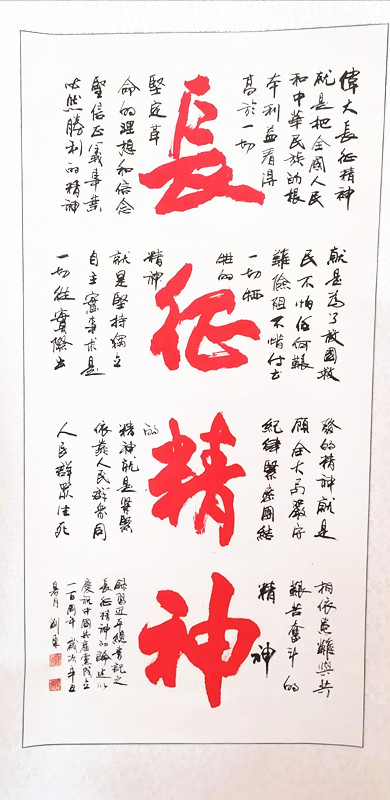 偉大長征精神
就是把全國人民
和中華民族的根
本利益看得
高於一切
長
堅定革
命的理想和信念
堅信正義事業
必然勝利的精神
就是為了救國救
民不怕任何艱
難險阻不惜付出
一切犧
牲的
征
精神
就是堅持獨立
自主實事求是
一切從實際出
發的精神就是
顧全大局嚴守
紀律緊密團結
精
的
精神就是緊緊
依靠人民群眾同
人民群眾生死
相依患難與共
艱苦奮斗的
精神
神
錄習近平總書記之
長征精神的論述以
慶祝中國共產黨成立
一百周年 歲次辛丑
夏月 劉